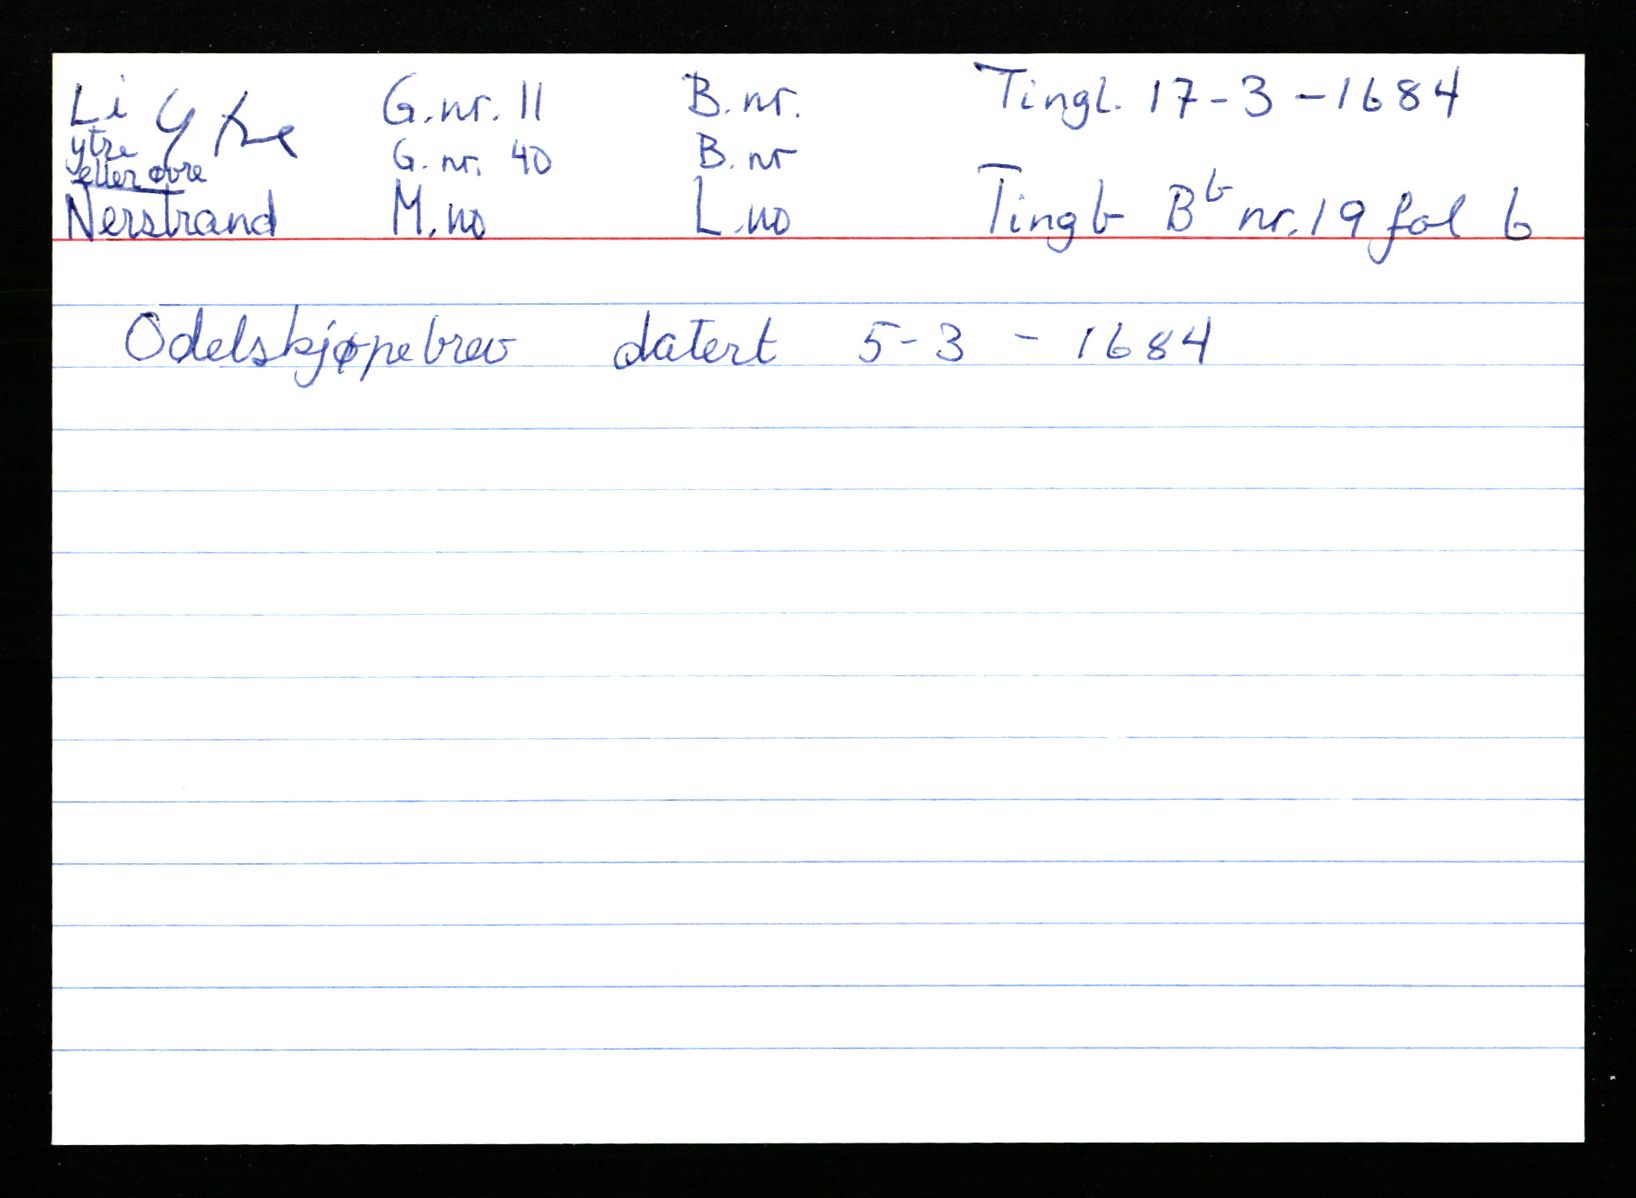 Li Ytre G.nr. 11 B.nr. Tingl. 17-3-1684
ytre G.nr. 40 B.nr
eller øvre
Nerstrand M.no L.no Tingb Bb nr. 19 fol 6
Odelskjøpebrev datert 5-3-1684